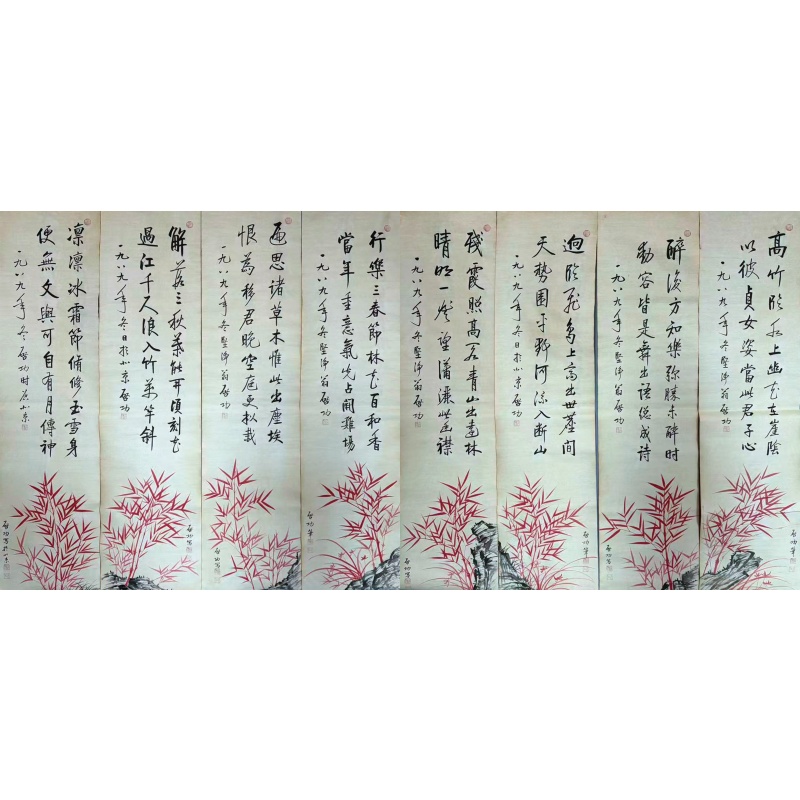 高竹臨水上幽花在崖陰
以彼貞女姿當此君子心
一九八九年冬堅净翁啟功
醉後方知樂弥勝未醉時
動容皆是舞出語總成詩
一九八九年冬堅净翁啟功
啟功写
迥臨飛鳥上高出世塵間
天勢圍平野河流入断山
一九八九年冬日於北京啟功
啟功筆
殘霞照高閣青山出遠林
晴明一登望瀟灑此幽襟
一九八九年冬堅净翁啟功
啟功写
行樂三春節林花百和香
當年重意氣先占鬭雞場
一九八九年冬堅净翁啟功
啟功筆
遍思諸草木惟此出塵埃
恨為移君晚空庭更擬栽
一九八九年冬堅净翁啟功
啟功写
解落三秋葉能開頃刻花
過江千尺浪入竹萬竿斜
一九八九年冬日於北京啟功
啟功写
凛凛冰霜節脩脩玉雪身
便無文與可自有月傳神
一九八九年冬啟功时居北京